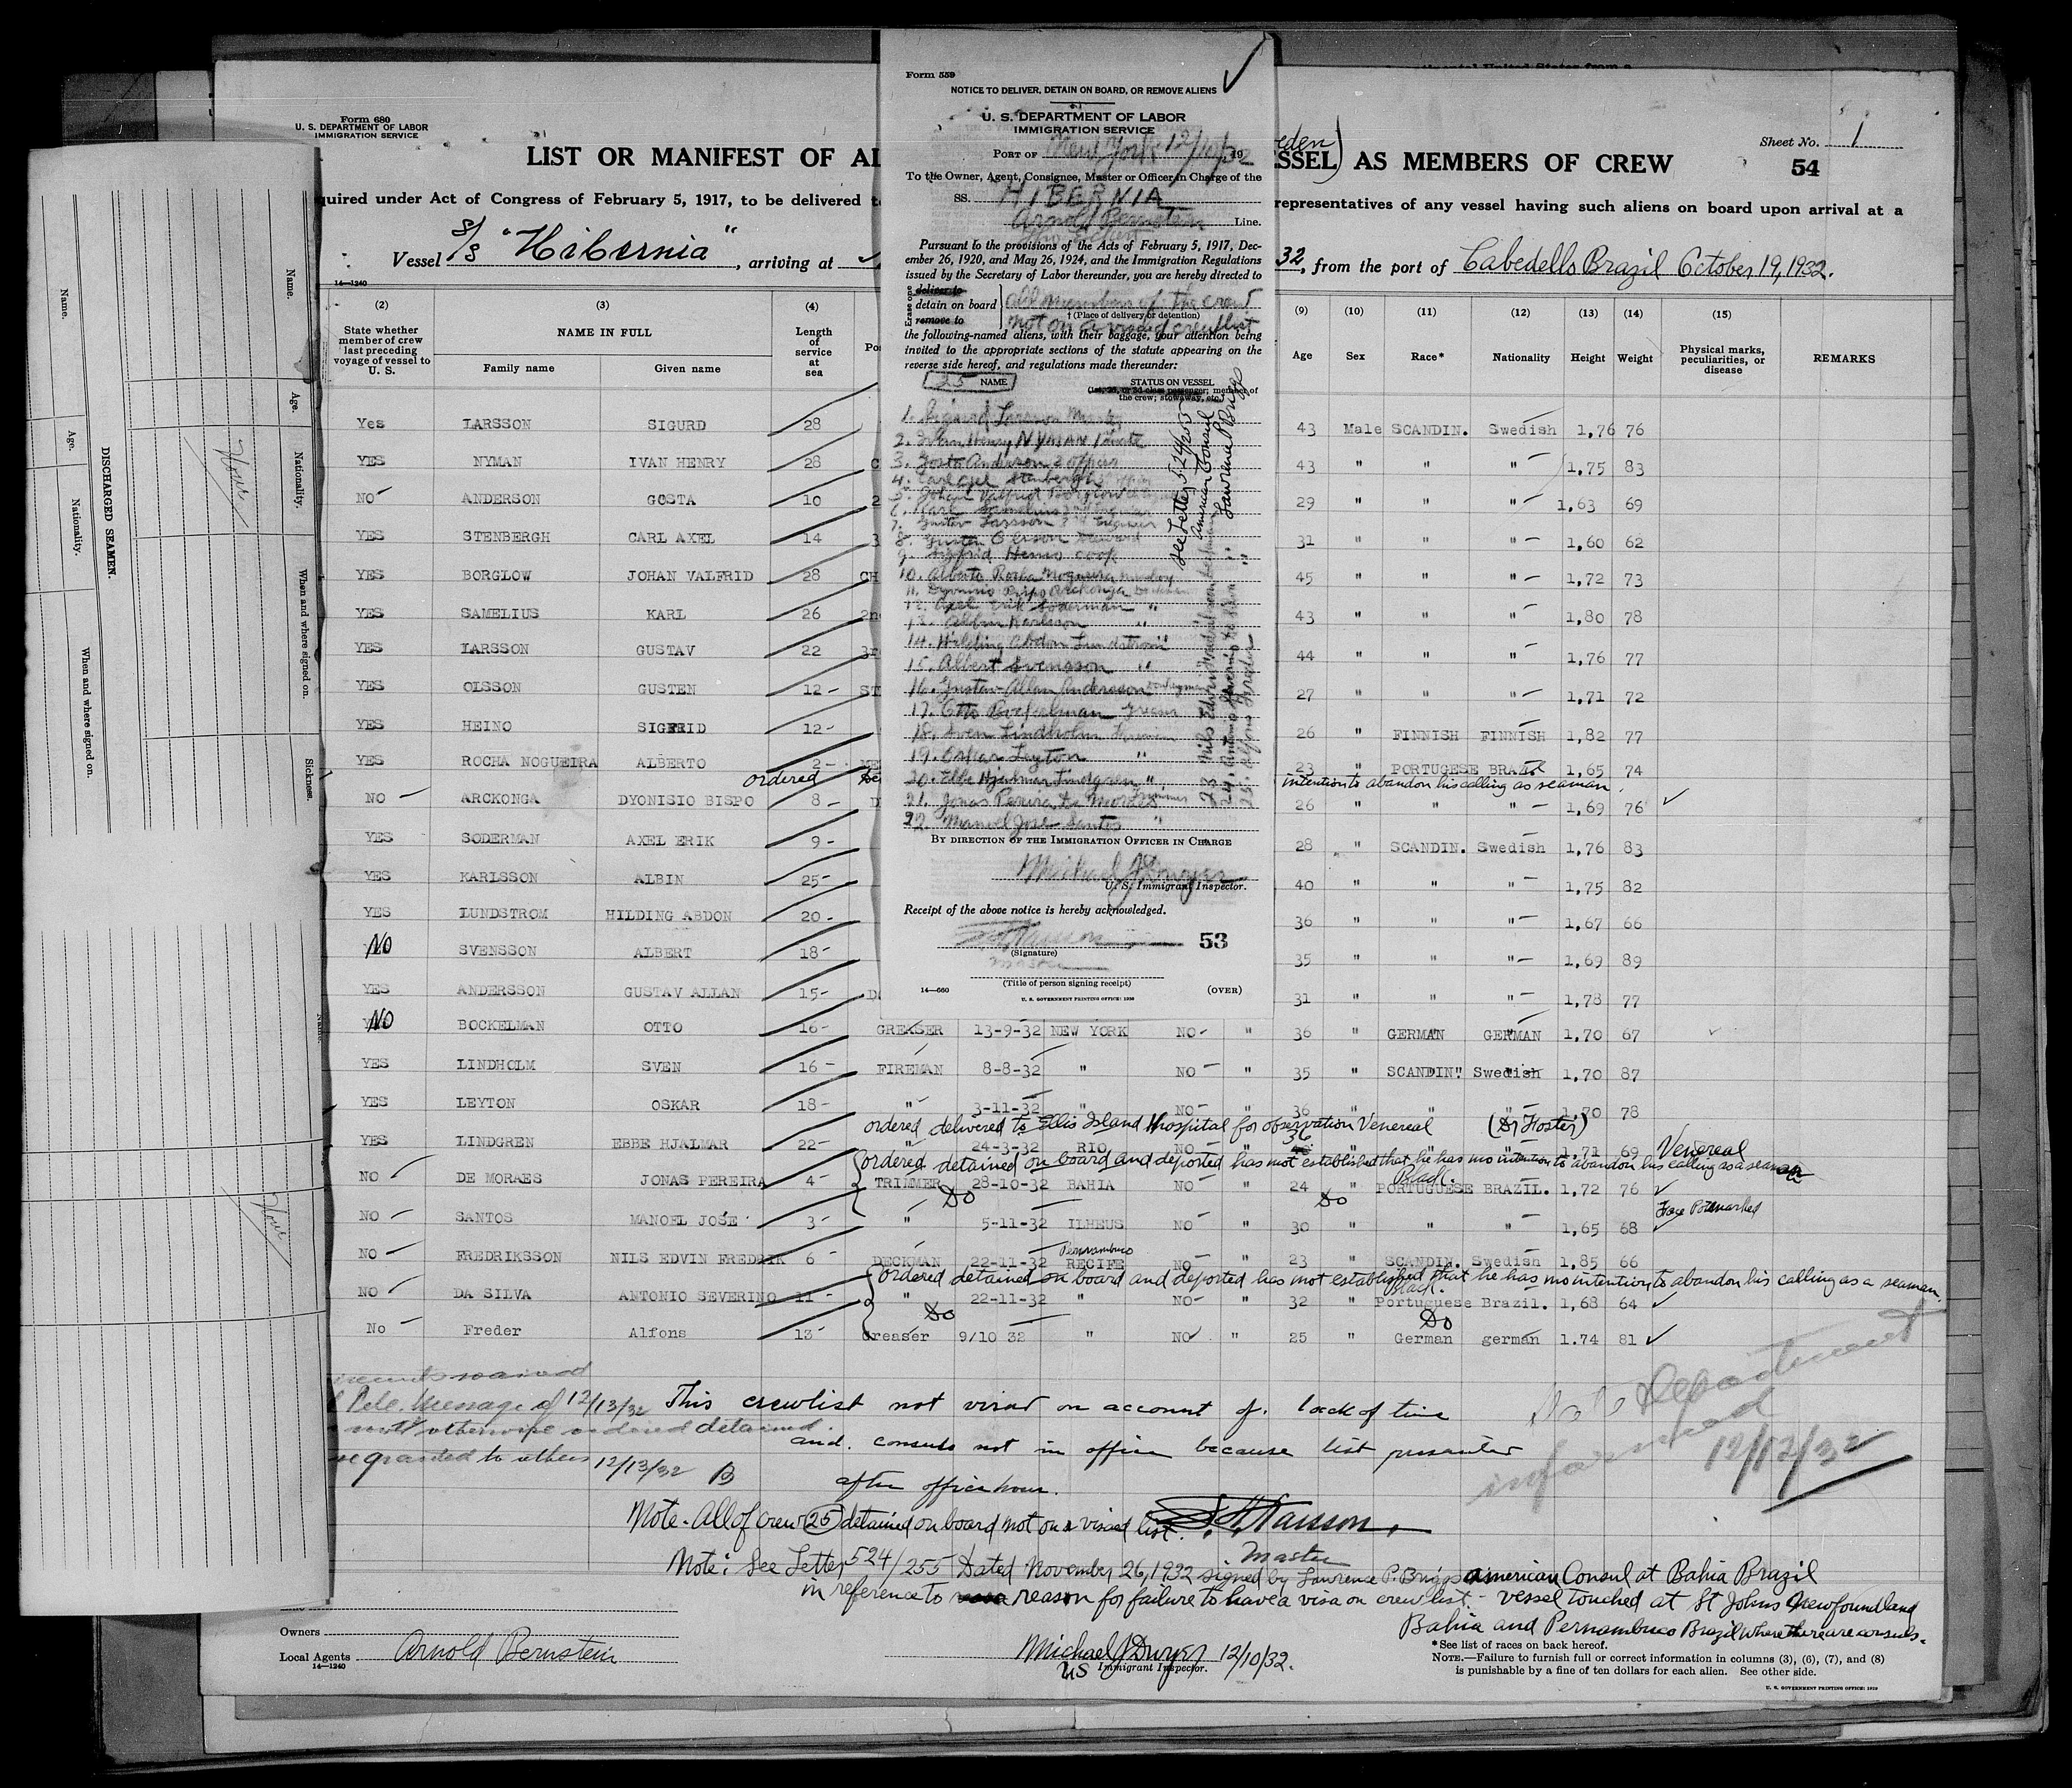 Form 680
U. S. DEPARTMENT OF LABOR
IMMIGRATION SERVICE
Sheet No. 1
54
LIST OR MANIFEST OF AL
SSEL) AS MEMBERS OF CREW
quired under Act of Congress of February 5, 1917, to be delivered t
representatives of any vessel having such aliens on board upon arrival at a
Vessel S/S "Hibernia", arriving at
32, from the port of Cabedello Brazil October 19, 1932.
14—1240
(2) (3) (4) (9) (10) (11) (12) (13) (14) (15)
State whether member of crew last preceding voyage of vessel to U. S.
NAME IN FULL
Family name Given name
Length of service at sea
Age Sex Race* Nationality Height Weight
Physical marks, peculiarities, or disease
REMARKS
Yes LARSSON SIGURD 28 43 Male SCANDIN. Swedish 1,76 76
YES NYMAN IVAN HENRY 28 43 " " " 1,75 83
NO ANDERSON GOSTA 10 29 " " " 1,63 69
YES STENBERGH CARL AXEL 14 31 " " " 1,60 62
YES BORGLOW JOHAN VALFRID 28 45 " " " 1,72 73
YES SAMELIUS KARL 26 43 " " " 1,80 78
YES LARSSON GUSTAV 22 44 " " " 1,76 77
YES OLSSON GUSTEN 12 27 " " " 1,71 72
YES HEINO SIGFRID 12 26 " FINNISH FINNISH 1,82 77
YES ROCHA NOGUEIRA ALBERTO 2 23 " PORTUGESE BRAZIL 1,65 74
ordered
intention to abandon his calling as seaman.
NO ARCKONGA DYONISIO BISPO 8 26 " " " 1,69 76
YES SODERMAN AXEL ERIK 9 28 " SCANDIN. Swedish 1,76 83
YES KARLSSON ALBIN 25 40 " " " 1,75 82
YES LUNDSTROM HILDING ABDON 20 36 " " " 1,67 66
NO SVENSSON ALBERT 18 35 " " " 1,69 89
YES ANDERSSON GUSTAV ALLAN 15 31 " " " 1,78 77
NO BOCKELMAN OTTO 16 GREASER 13-9-32 NEW YORK NO " 36 " GERMAN GERMAN 1,70 67
YES LINDHOLM SVEN 16 FIREMAN 8-8-32 " NO " 35 " SCANDIN. Swedish 1,70 87
YES LEYTON OSKAR 18 " 3-11-32 " NO " 36 " " " 1,70 78
ordered delivered to Ellis Island Hospital for observation Venereal (Dr Foster)
YES LINDGREN EBBE HJALMAR 22 " 24-3-32 RIO NO " 36 " " " 1,71 69 Venereal
ordered detained on board and deported has not established that he has no intention to abandon his calling as a seaman
NO DE MORAES JONAS PEREIRA 4 TRIMMER 28-10-32 BAHIA NO " 24 " Black. PORTUGUESE BRAZIL. 1,72 76
Do Do
NO SANTOS MANOEL JOSE 3 " 5-11-32 ILHEUS NO " 30 " " " 1,65 68 Face Pockmarked
NO FREDRIKSSON NILS EDVIN FREDRIK 6 DECKMAN 22-11-32 Pernambuco RECIFE NO " 23 " SCANDIN. Swedish 1,85 66
ordered detained on board and deported has not established that he has no intention to abandon his calling as a seaman.
NO DA SILVA ANTONIO SEVERINO 11 " 22-11-32 " NO " 32 " Black. Portuguese Brazil. 1,68 64
Do Do
No Freder Alfons 13 Greaser 9/10 32 " NO " 25 " German german 1.74 81
Tele. Message of 12/13/32
not otherwise ordered detained.
granted to others 12/13/32 B
This crewlist not visad on account of. lack of time
and. consuls not in office because list presented
after office hour.
Note- All of crew (25) detained on board not on a visaed list.
Master
Note: See Letter 524/255 Dated November 26, 1932 signed by Lawrence P. Briggs American Consul at Bahia Brazil
in reference to reason for failure to have a visa on crew list - vessel touched at St Johns Newfoundland
Bahia and Pernambuco Brazil where there are consuls.
Department
informed
12/12/32
Owners
Local Agents Arnold Bernstein
14—1240
Michael J Dwyer 12/10/32.
US Immigrant Inspector.
*See list of races on back hereof.
NOTE.—Failure to furnish full or correct information in columns (3), (6), (7), and (8)
is punishable by a fine of ten dollars for each alien. See other side.
Form 559
NOTICE TO DELIVER, DETAIN ON BOARD, OR REMOVE ALIENS
U. S. DEPARTMENT OF LABOR
IMMIGRATION SERVICE
PORT OF New York 12/10/32
To the Owner, Agent, Consignee, Master or Officer in Charge of the
SS. HIBERNIA
Arnold Bernstein Line.
Pursuant to the provisions of the Acts of February 5, 1917, Dec-
ember 26, 1920, and May 26, 1924, and the Immigration Regulations
issued by the Secretary of Labor thereunder, you are hereby directed to
Erase one
deliver to
detain on board
remove to
all members of the crew
† (Place of delivery or detention)
not on a visaed crew list
the following-named aliens, with their baggage, your attention being
invited to the appropriate sections of the statute appearing on the
reverse side hereof, and regulations made thereunder:
25 NAME
STATUS ON VESSEL
(1st, 2d, or 3d class passenger; member of
the crew; stowaway, etc.)
1. Sigurd Larsson
2. Ivan Henry NYMAN
3. Gosta Anderson 2 officer
4. Carl Axel Stenbergh
5. Johan Valfrid Borglow
6. Karl Samelius 2nd Engineer
7. Gustav Larsson 3rd Engineer
8. Gusten Olsson Steward
9. Sigfrid Heino cook
10. Alberto Rocha Nogueira
11. Dyonisio Bispo Arckonga
12. Axel Erik Soderman "
13. Albin Karlsson "
14. Hilding Abdon Lundstrom "
15. Albert Svensson "
16. Gustav Allan Andersson
17. Otto Bockelman Greaser
18. Sven Lindholm Fireman
19. Oskar Leyton "
20. Ebbe Hjalmar Lindgren "
21. Jonas Pereira De Moraes Trimmer
22. Manoel Jose Santos "
23 Nils Edvin Fredrik
24. Antonio Severino da Silva "
25. Alfons Freder "
See Letter 524/255
American Consul
Lawrence P. Briggs
BY DIRECTION OF THE IMMIGRATION OFFICER IN CHARGE
Michael J Dwyer
U. S. Immigrant Inspector.
Receipt of the above notice is hereby acknowledged.
53
(Signature)
Master
(Title of person signing receipt)
14—660
U. S. GOVERNMENT PRINTING OFFICE: 1930
(OVER)
DISCHARGED SEAMEN.
Name. Age. Nationality. When and where signed on.
Name. Age. Nationality. When and where signed on. Sickness.